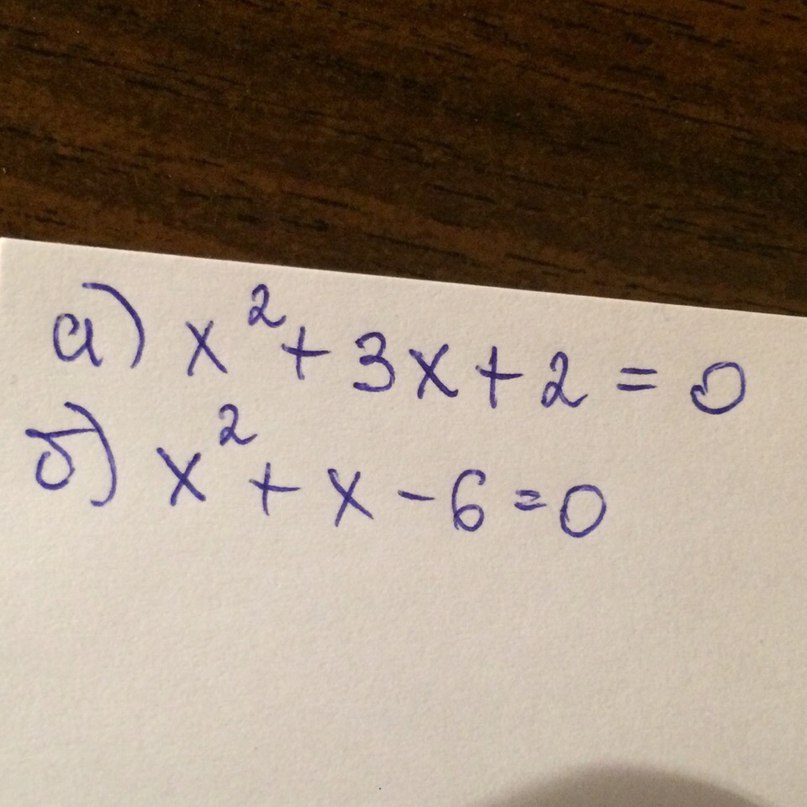 а) x² + 3x + 2 = 0
б) x² + x - 6 = 0